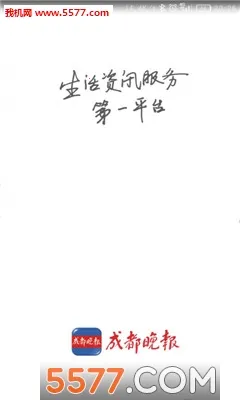 我机网
www.5577.com
生活资讯服务
第一平台
成都晚报
成都晚报
5577.COM